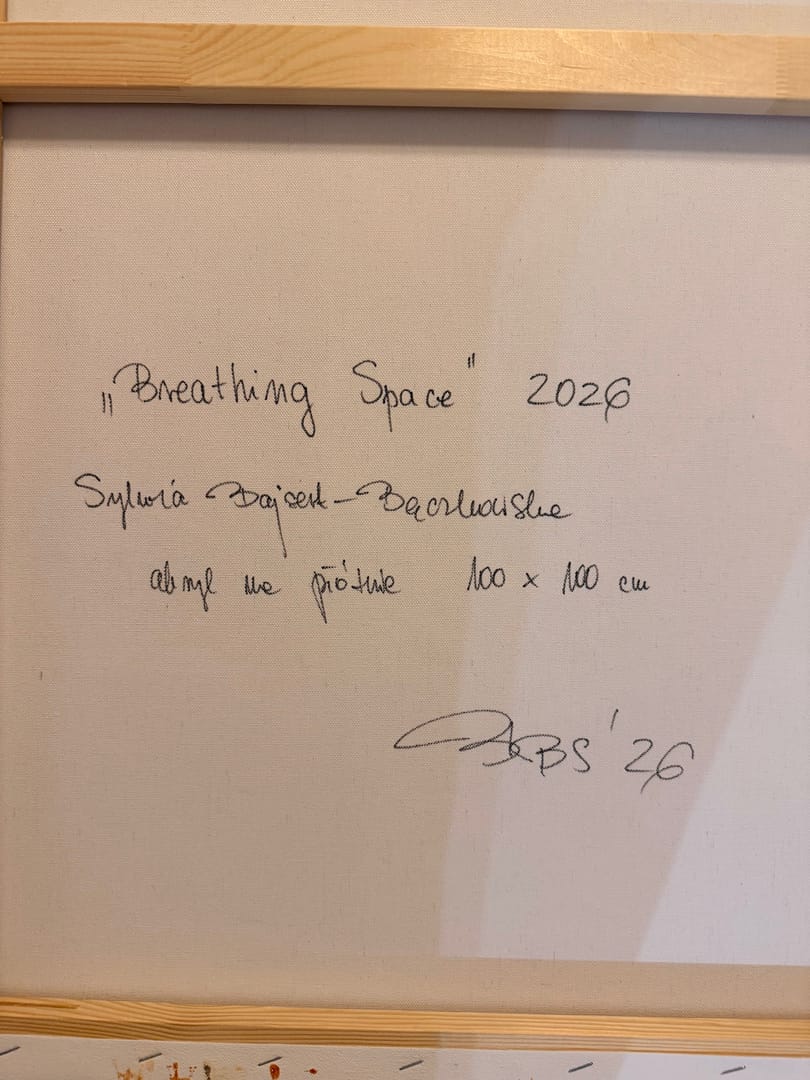 „Breathing Space" 2026
Sylwia Bajsert-Bączkowska
akryl na płótnie 100 x 100 cm
BS '26